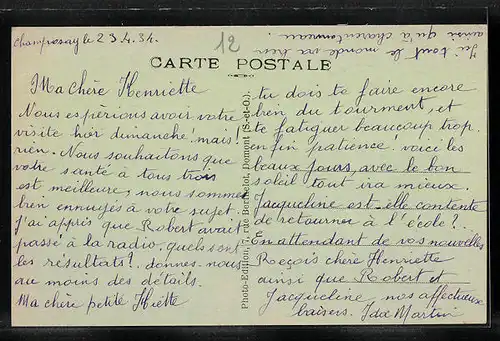 Champrosay le 23.4.34.
12
Ici tout le monde va bien
ainsi qu'à charentonneau.
CARTE POSTALE
Ma chère Henriette
Nous espèrions avoir votre
visite hier dimanche! mais!
rien. Nous souhaitons que
votre santé à tous trois
est meilleure, nous sommes
bien ennuyés à votre sujet.
J'ai appris que Robert avait
passé à la radio. quels sont
les résultats? donnez-nous
au moins des détails.
Ma chère petite Hiette
Photo-Edition, 7, rue Berthelot, Domont (S.-et-O.).
tu dois te faire encore
bien du tourment, et
te fatiguer beaucoup trop.
enfin patience. voici les
beaux jours, avec le bon
soleil tout ira mieux.
Jacqueline est-elle contente
de retourner à l'école?
En attendant de vos nouvelles
Reçois chère Henriette
ainsi que Robert et
Jacqueline, nos affectueux
baisers. Ida Martin